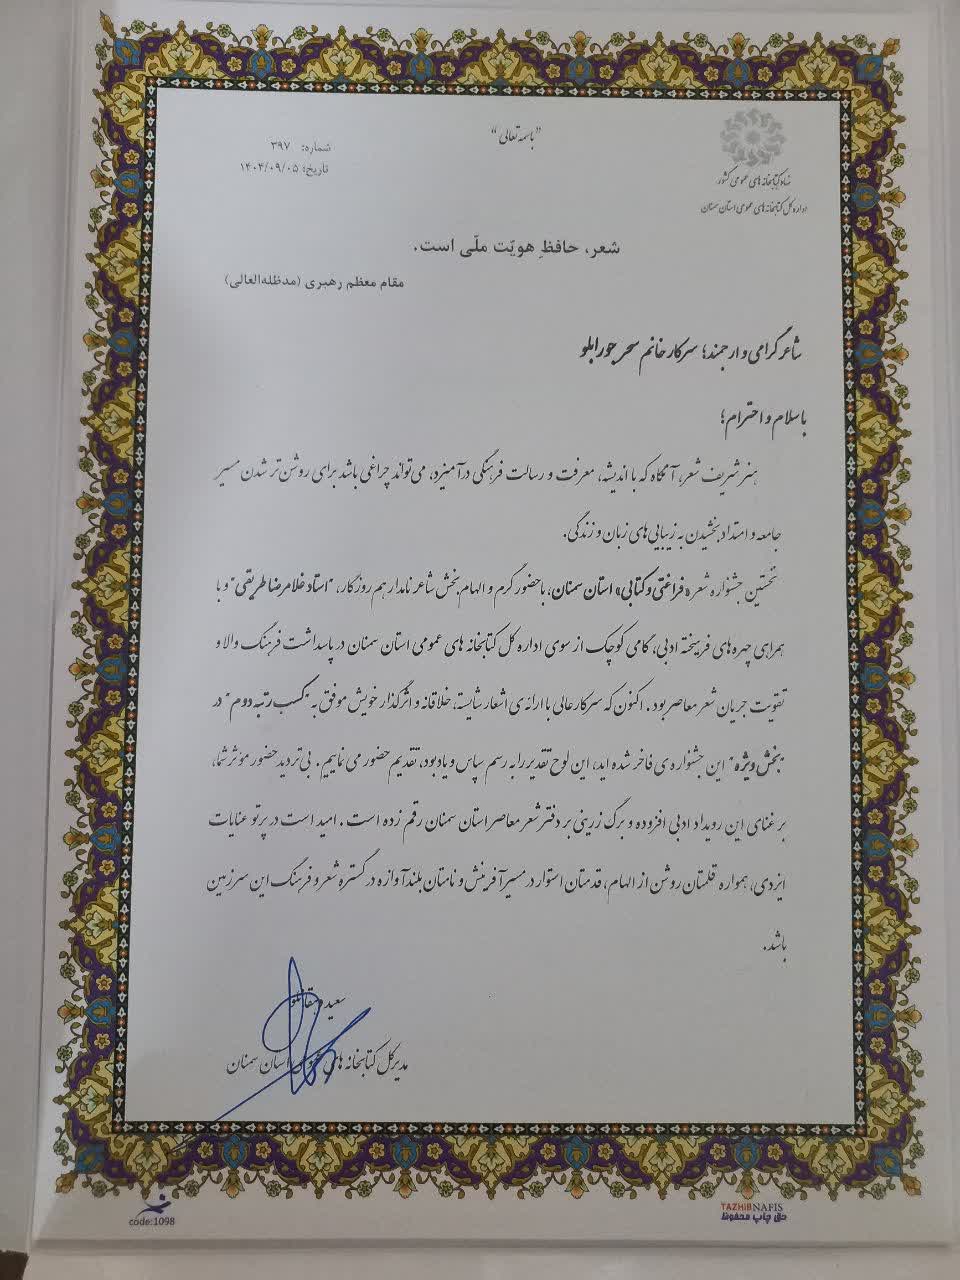 "باسمه تعالی"
شماره: ۳۹۷
تاریخ: ۱۴۰۴/۰۹/۰۵
نهاد کتابخانه های عمومی کشور
اداره کل کتابخانه های عمومی استان سمنان
شعر، حافظِ هویّت ملّی است.
مقام معظم رهبری (مدظله‌العالی)
شاعر گرامی و ارجمند؛ سرکار خانم سحر جورابلو
با سلام و احترام؛
هنر شریف شعر، آنگاه که با اندیشه، معرفت و رسالت فرهنگی درآمیزد، می‌تواند چراغی باشد برای روشن تر شدن مسیر
جامعه و امتداد بخشیدن به زیبایی‌های زبان و زندگی.
نخستین جشنواره شعر «فراغتی و کتابی» استان سمنان، با حضور گرم و الهام بخش شاعر نامدار هم روزگار، "استاد غلامرضا طریقی" و با
همراهی چهره های فرهیخته ادبی، گامی کوچک از سوی اداره کل کتابخانه های عمومی استان سمنان در پاسداشت فرهنگ والا و
تقویت جریان شعر معاصر بود. اکنون که سرکارعالی با ارائه‌ی اشعار شایسته، خلاقانه و اثرگذار خویش موفق به "کسب رتبه دوم" در
"بخش ویژه" این جشنواره‌ی فاخر شده اید، این لوح تقدیر را به رسم سپاس و یادبود، تقدیم حضور می نماییم. بی‌تردید حضور موثر شما،
بر غنای این رویداد ادبی افزوده و برگ زرینی بر دفتر شعر معاصر استان سمنان رقم زده است. امید است در پرتو عنایات
ایزدی، همواره قلمتان روشن از الهام، قدمتان استوار در مسیر آفرینش و نامتان بلندآوازه در گستره شعر و فرهنگ این سرزمین
باشد.
سعیده
مدیرکل کتابخانه های عمومی استان سمنان
code:1098
TAZHIBNAFIS
حق چاپ محفوظ